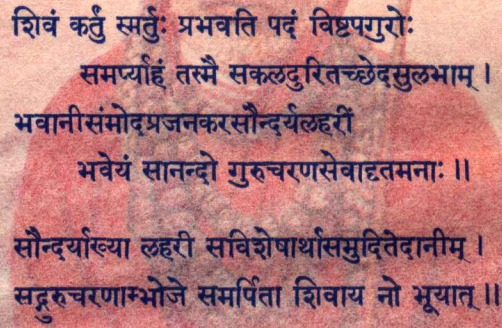 शिवं कर्तुं स्मर्तुः प्रभवति पदं विष्टपगुरोः
समर्प्याहं तस्मै सकलदुरितच्छेदसुलभाम् ।
भवानीसंमोदप्रजननकरसौन्दर्यलहरीं
भवेयं सानन्दो गुरुचरणसेवादृतमनाः ॥
सौन्दर्याख्या लहरी सविशेषार्थासमुदितेदानीम् ।
सद्गुरुचरणाम्भोजे समर्पिता शिवाय नो भूयात् ॥